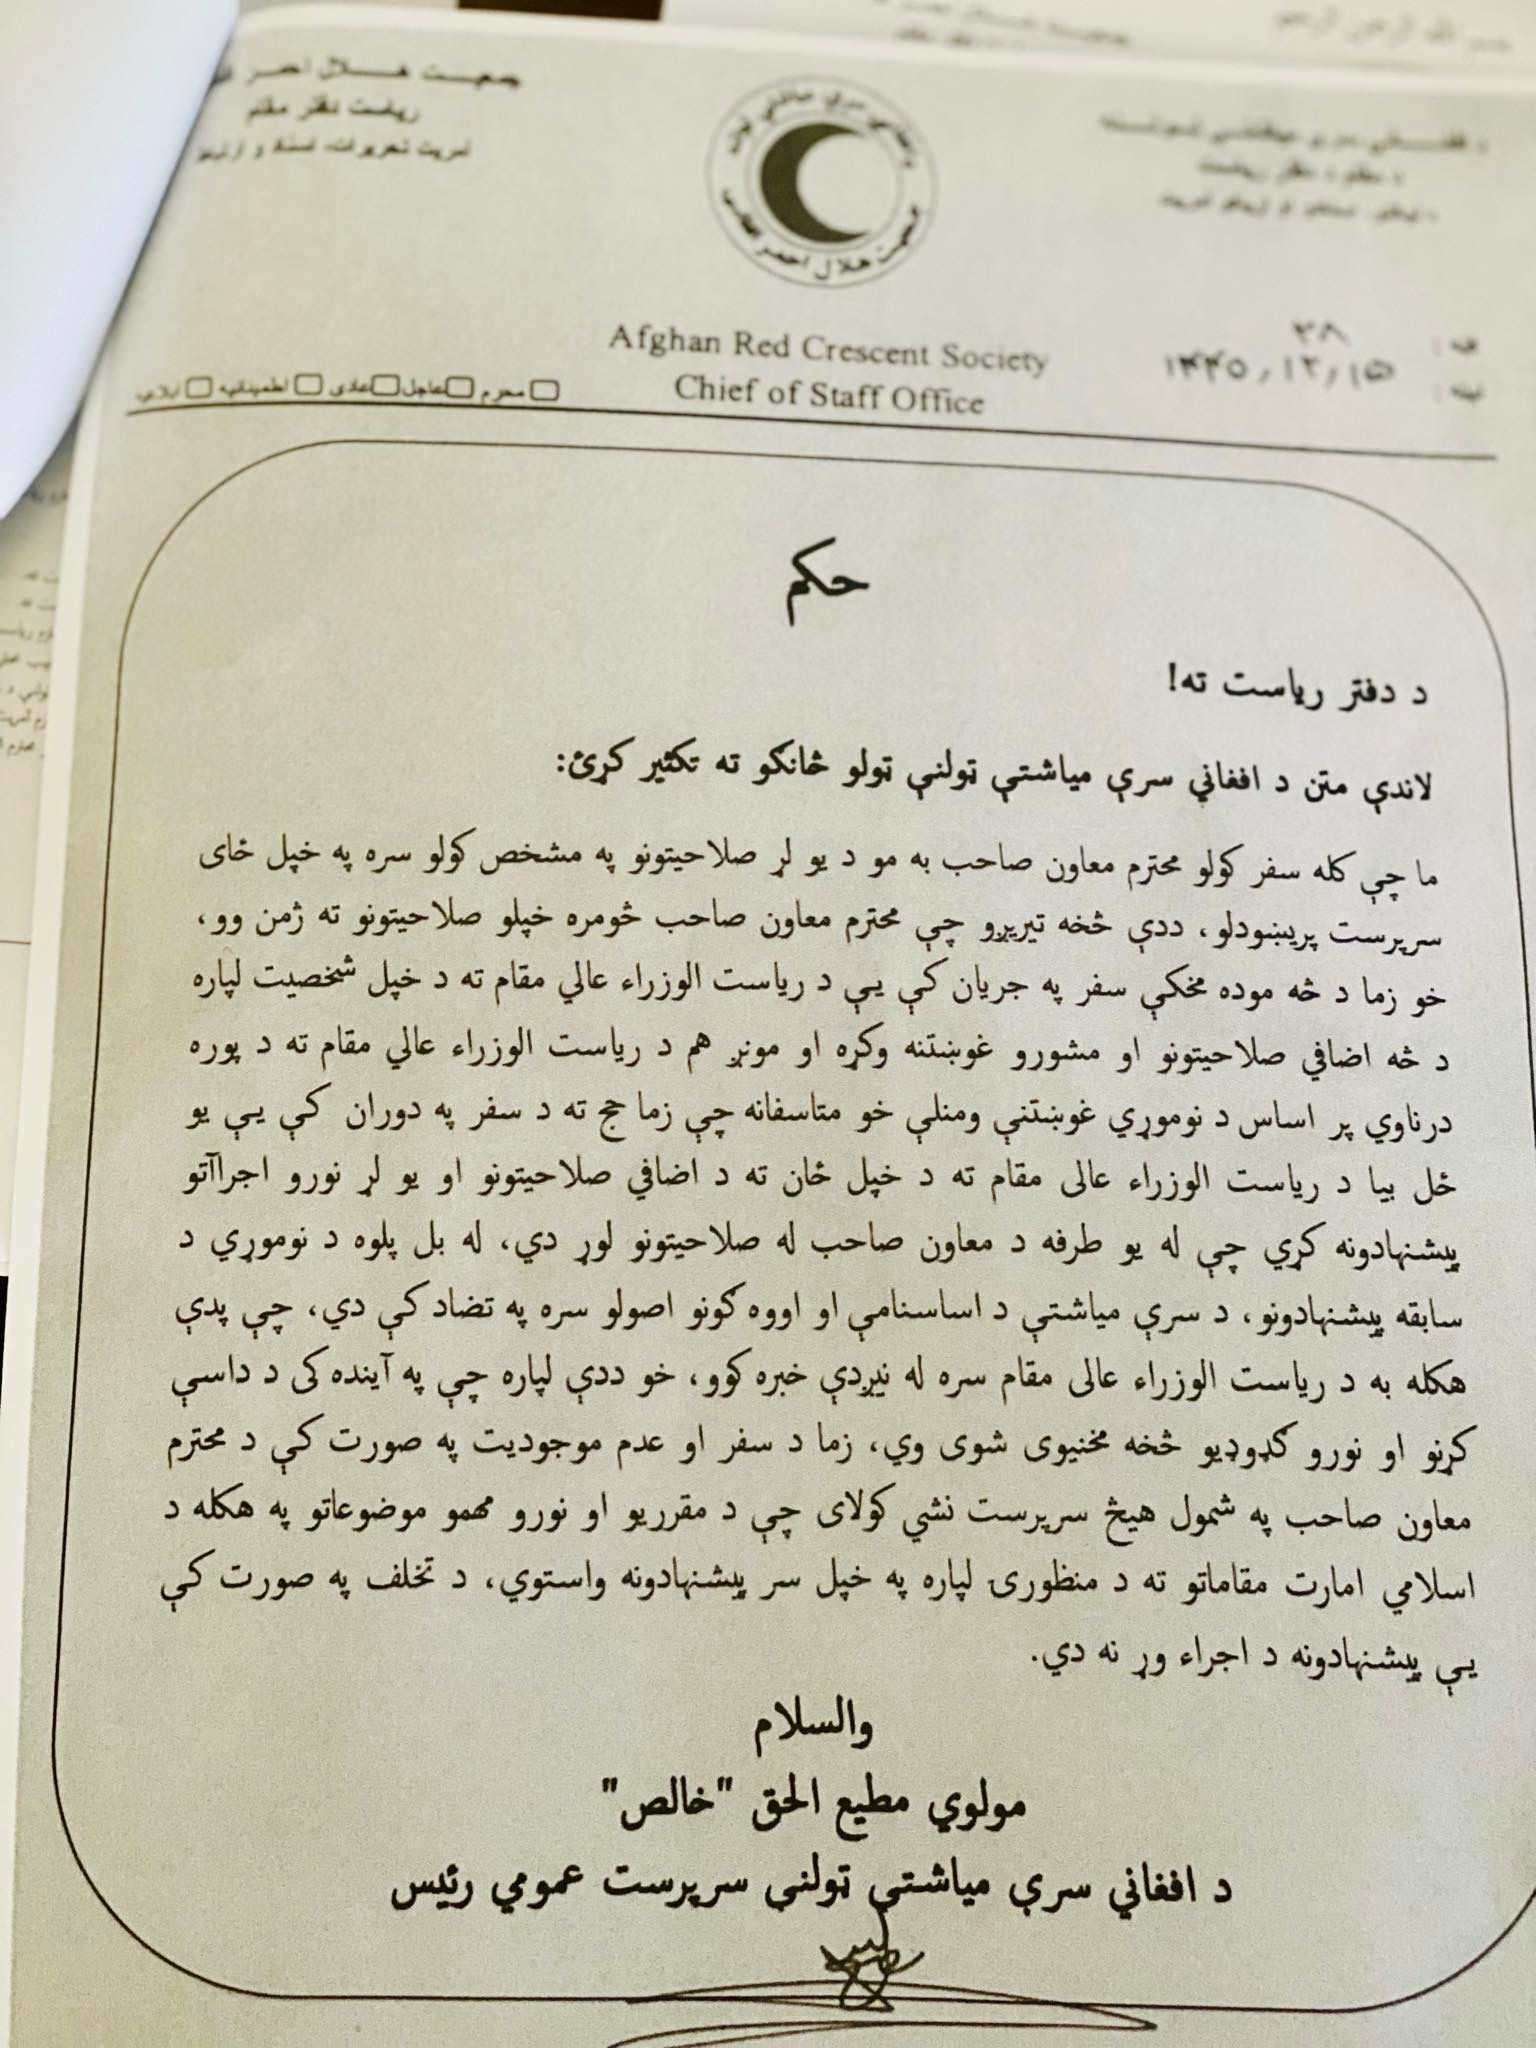 جمعیت هلال احمر
ریاست دفتر مقام
آمریت تحریرات، اسناد و ارتباط
د افغاني سرې میاشتې ټولنه
د مقام د دفتر ریاست
د افغاني سرې میاشتې ټولنه
جمعیت هلال احمر افغانی
Afghan Red Crescent Society
Chief of Staff Office
۳۸
۱۴۴۵/۱۲/۱۵
محرم عاجل عادی اطمینانیه ابلاغی
حکم
د دفتر ریاست ته!
لاندې متن د افغاني سرې میاشتې ټولنې ټولو څانګو ته تکثیر کړئ:
ما چې کله سفر کولو محترم معاون صاحب به مو د یو لړ صلاحیتونو په مشخص کولو سره په خپل ځای
سرپرست پریښودلو، ددې څخه تیریږو چې محترم معاون صاحب څومره خپلو صلاحیتونو ته ژمن وو،
خو زما د څه موده مخکې سفر په جریان کې یې د ریاست الوزراء عالي مقام ته د خپل شخصیت لپاره
د څه اضافي صلاحیتونو او مشورو غوښتنه وکړه او مونږ هم د ریاست الوزراء عالي مقام ته د پوره
درناوي پر اساس د نوموړي غوښتنې ومنلې خو متاسفانه چې زما حج ته د سفر په دوران کې یې یو
ځل بیا د ریاست الوزراء عالی مقام ته د خپل ځان ته د اضافي صلاحیتونو او یو لړ نورو اجراآتو
پیشنهادونه کړي چې له یو طرفه د معاون صاحب له صلاحیتونو لوړ دي، له بل پلوه د نوموړي د
سابقه پیشنهادونو، د سرې میاشتې د اساسنامې او اووه ګونو اصولو سره په تضاد کې دي، چې پدې
هکله به د ریاست الوزراء عالی مقام سره له نیږدې خبره کوو، خو ددې لپاره چې په آینده کی د داسې
کړنو او نورو ګډوډیو څخه مخنیوی شوی وي، زما د سفر او عدم موجودیت په صورت کې د محترم
معاون صاحب په شمول هیڅ سرپرست نشي کولای چې د مقرریو او نورو مهمو موضوعاتو په هکله د
اسلامي امارت مقاماتو ته د منظورۍ لپاره په خپل سر پیشنهادونه واستوي، د تخلف په صورت کې
یې پیشنهادونه د اجراء وړ نه دي.
والسلام
مولوي مطیع الحق "خالص"
د افغاني سرې میاشتې ټولنې سرپرست عمومي رئیس